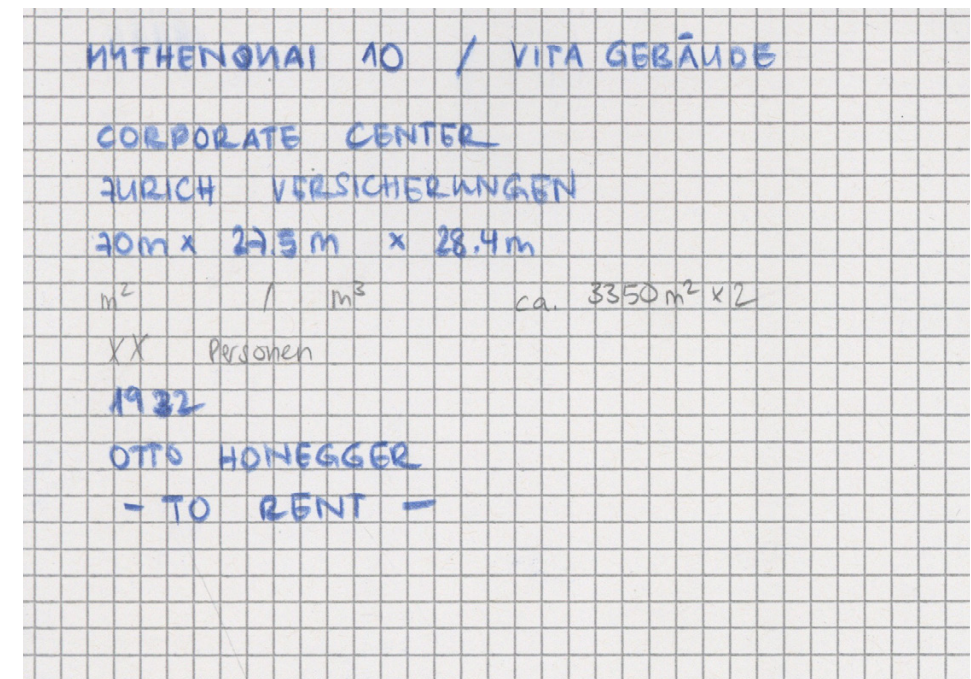 MYTHENQUAI 10 / VITA GEBÄUDE
CORPORATE CENTER
ZURICH VERSICHERUNGEN
70m x 27.5 m x 28.4 m
m² / m³ ca. 3350 m² x 2
XX Personen
1932
OTTO HONEGGER
- TO RENT -